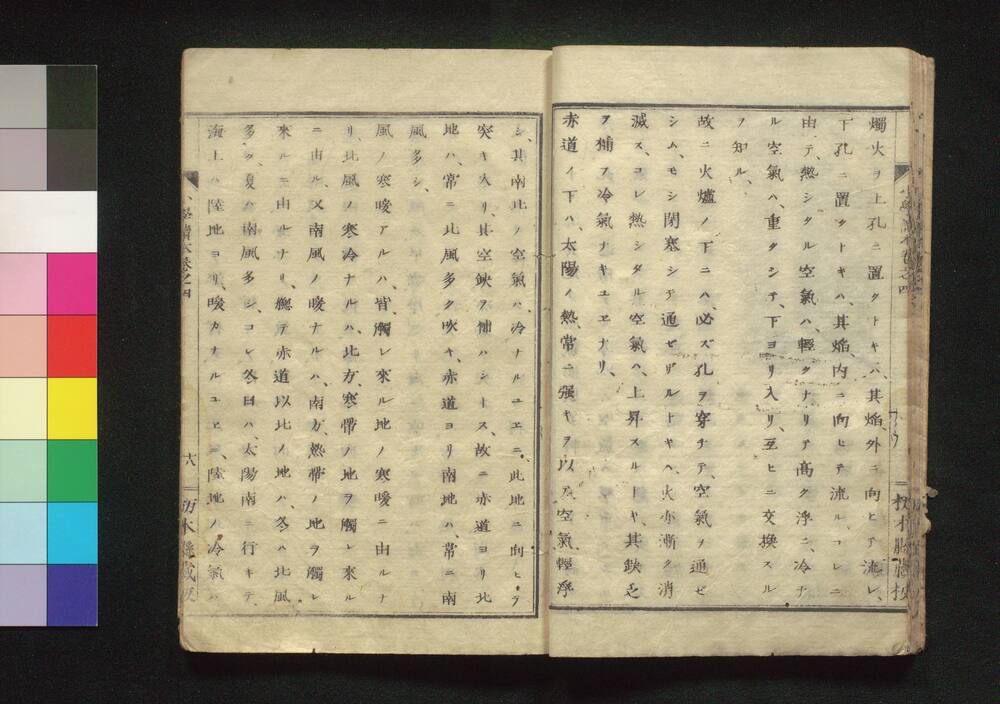 燭火ヲ上孔ニ置クトキハ、其焰、外ニ向ヒテ流レ、
下孔ニ置クトキハ、其焰、内ニ向ヒテ流ル、コレニ
由テ、熱シタル空氣ハ、輕クナリテ高ク浮ミ、冷ナ
ル空氣ハ、重クシテ、下ヨリ入リ、互ヒニ交換スル
ヲ知ル、
故ニ火爐ノ下ニハ、必ズ孔ヲ穿チテ、空氣ヲ通ゼ
シム、モシ閉塞シテ通ゼザルトキハ、火亦漸ク消
滅ス、コレ熱シタル空氣ハ、上昇スルトキ、其鈌乏
ヲ補フ冷氣ナキユヱナリ、
赤道ノ下ハ、太陽ノ熱、常ニ强キヲ以テ、空氣、輕浮
シ、其南北ノ空氣ハ、冷ナルユヱニ、此地ニ向ヒテ
突キ入リ、其空鈌ヲ補ハントス、故ニ赤道ヨリ北
地ハ、常ニ北風多ク吹キ、赤道ヨリ南地ハ、常ニ南
風多シ、
風ノ寒暖アルハ、皆觸レ來ル地ノ寒暖ニ由ルナ
リ、北風ノ寒冷ナルハ、北方、寒帶ノ地ヲ觸レ來ル
ニ由ル、又南風ノ暖ナルハ、南方、熱帶ノ地ヲ觸レ
來ルニ由ルナリ、總テ赤道以北ノ地ハ、冬ハ北風
多ク、夏ハ南風多シ、コレ冬日ハ、太陽南ニ行キテ、
海上ハ陸地ヨリ、暖カナルユヱニ、陸地ノ冷氣ハ
小學讀本卷之四
十八